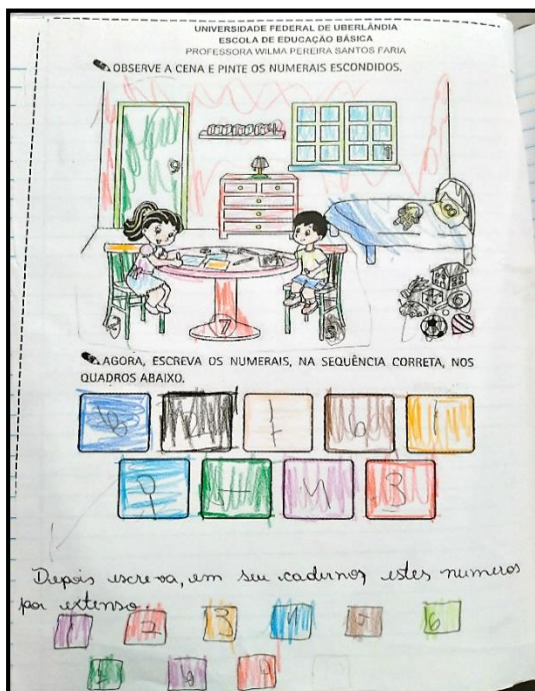 UNIVERSIDADE FEDERAL DE UBERLÂNDIA
ESCOLA DE EDUCAÇÃO BÁSICA
PROFESSORA WILMA PEREIRA SANTOS FARIA
OBSERVE A CENA E PINTE OS NUMERAIS ESCONDIDOS.
9
8
6
2 7 5
AGORA, ESCREVA OS NUMERAIS, NA SEQUÊNCIA CORRETA, NOS
QUADROS ABAIXO.
6 1
9 3
Depois escreva, em seu caderno, estes números
por extenso.
1 2 3 4 5 6